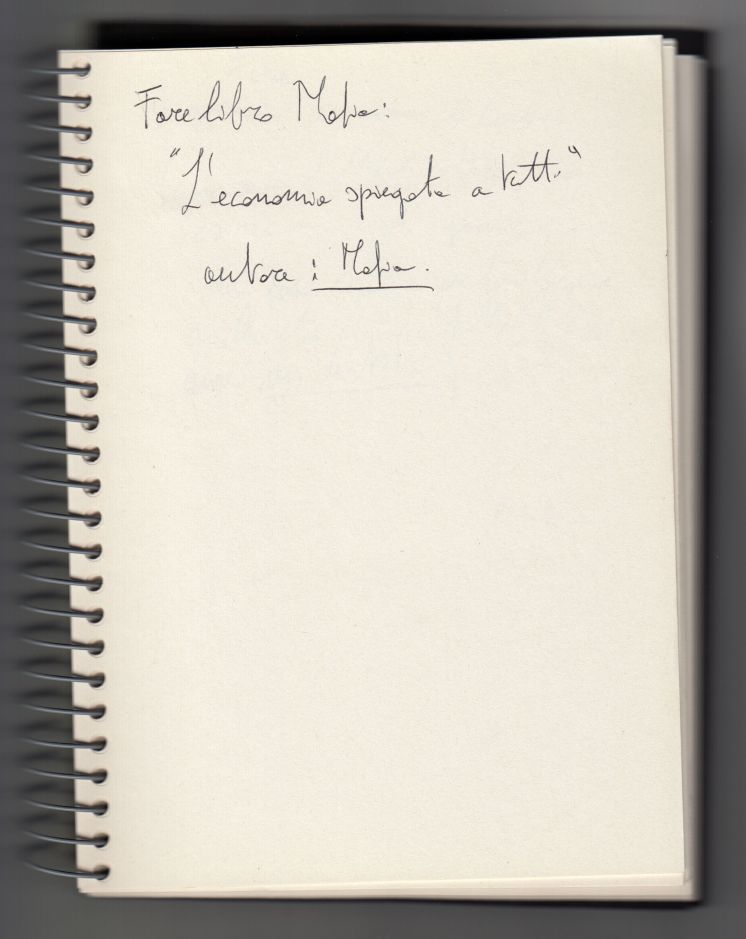 Fare libro Mafia:
"L'economia spiegata a tutti"
autore : Mafia.